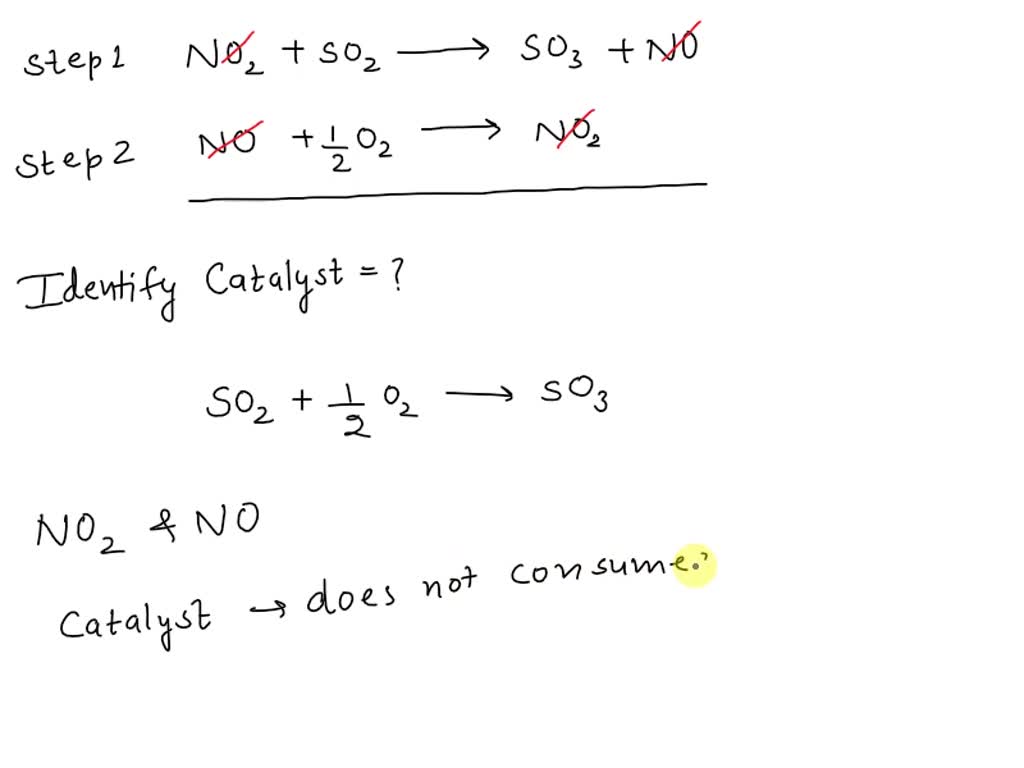 Step 1 NO₂ + SO₂ ⟶ SO₃ + NO
Step 2 NO + ½ O₂ ⟶ NO₂
Identify Catalyst = ?
SO₂ + ½ O₂ ⟶ SO₃
NO₂ & NO
Catalyst → does not consume.